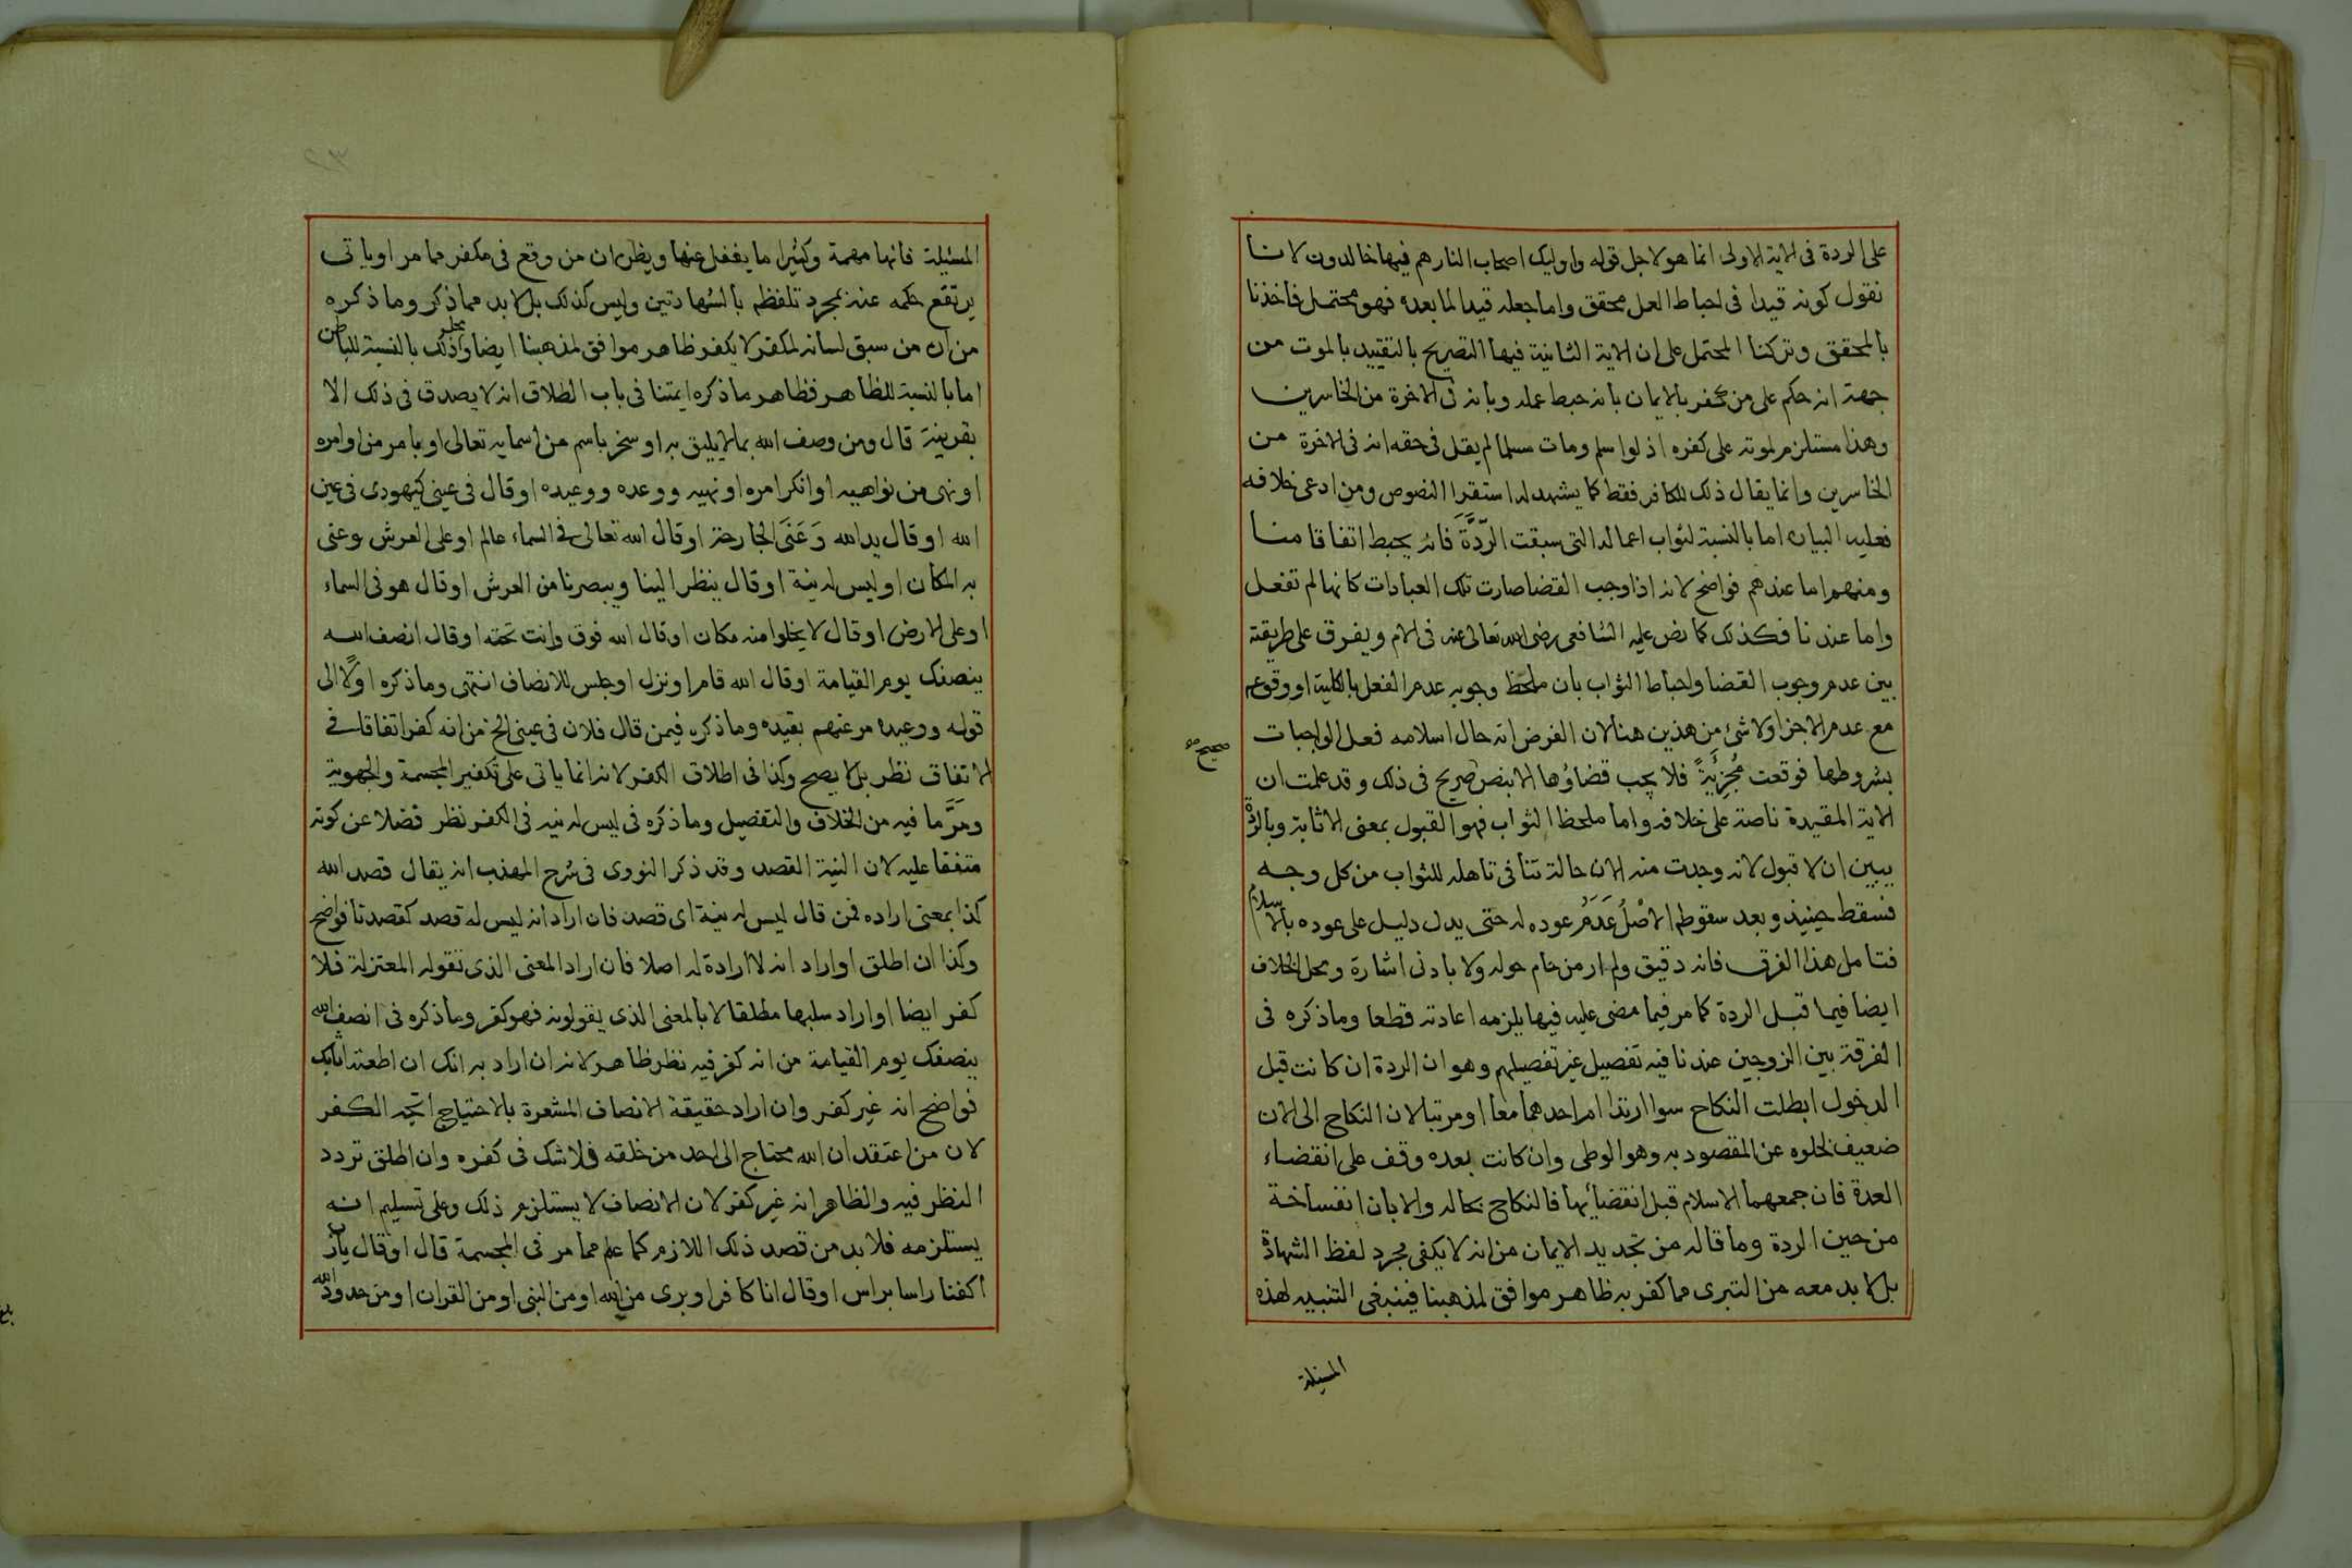 على الردة فى الاية الاولى انما هو لاجل قوله واوليك اصحاب النار هم فيها خالدون لانا
نقول كونه قيدا فى احباط العمل محقق واما جعله قيدا لما بعده فهو محتمل فاخذنا
بالمحقق وتركنا المحتمل على ان الاية الثانية فيها التصريح بالتقييد بالموت من
جهة انه حكم على من يكفر بالايمان بانه حبط عمله وبانه فى الاخرة من الخاسرين
وهذا مستلزم لموته على كفره اذ لو اسلم ومات مسلما لم يقل فى حقه انه فى الاخرة من
الخاسرين وانما يقال ذلك للكافر فقط كما يشهد له استقرا النصوص ومن ادعى خلافه
فعليه البيان اما بالنسبة لثواب اعماله التى سبقت الردة فانه يحبط اتفاقا منا
ومنهم اما عندهم فواضح لانه اذا وجب القضا صارت تلك العبادات كانها لم تفعل
واما عندنا فكذلك كما نص عليه الشافعى رضى الله تعالى عنه فى الام ويفرق على طريقته
بين عدم وجوب القضا واحباط الثواب بان ملحظ وجوبه عدم الفعل بالكلية او وقوعه
مع عدم الاجزا ولا شئ من هذين هنا لان الفرض انه حال اسلامه فعل الواجبات
صحيح
بشروطها فوقعت مجزئة فلا يجب قضاؤها الا بنص صريح فى ذلك وقد علمت ان
الاية المقيدة ناصة على خلافه واما ملحظ الثواب فهو القبول بمعنى الاثابة وبالردة
يبين ان لا قبول لانه وجدت منه الان حالة تنافى تاهله للثواب من كل وجه
فسقط حينيذ وبعد سقوطه الاصل عدم عوده له حتى يدل دليل على عوده بالاسلام
فتامل هذا الفرق فانه دقيق ولم ار من حام حوله ولا بادنى اشارة ومحل الخلاف
ايضا فيما قبل الردة كما مر فيما مضى عليه فيها يلزمه اعادته قطعا وماذكره فى
الفرقة بين الزوجين عندنا فيه تفصيل غير تفصيلهم وهو ان الردة ان كانت قبل
الدخول ابطلت النكاح سوا ارتدا ام احدهما معا او مرتبا لان النكاح الى الان
ضعيف لخلوه عن المقصود به وهو الوطى وان كانت بعده وقف على انقضاء
العدة فان جمعهما الاسلام قبل انقضائها فالنكاح بحاله والا بان انفساخه
من حين الردة وما قاله من تجديد الايمان من انه لا يكفى مجرد لفظ الشهادة
بل لا بد معه من التبرى مما كفر به ظاهر موافق لمذهبنا فينبغى التنبيه لهذه
المسئلة
المسئلة فانها مهمة وكثيرا ما يغفل عنها ويظن ان من وقع فى مكفر مما مر او ياتى
يرتفع حكمه عنه بمجرد تلفظه بالشهادتين وليس كذلك بل لا بد مما ذكر وما ذكره
من ان من سبق لسانه لمكفر لا يكفر ظاهر موافق لمذهبنا ايضا ومحل ذلك بالنسبة للباطن
اما بالنسبة للظاهر فظاهر ما ذكره ايمتنا فى باب الطلاق انه لا يصدق فى ذلك الا
بقرينة قال ومن وصف الله بما لا يليق به او سخر باسم من اسمايه تعالى او بامر من اوامره
او نهى من نواهيه او انكر امره او نهيه ووعده ووعيده او قال فى عينى كيهودى فى عين
الله او قال يد الله وعنى الجارحة او قال الله تعالى فى السماء عالم او على العرش وعنى
به المكان او ليس له نية او قال ينظر الينا ويبصرنا من العرش او قال هو فى السماء
او على الارض او قال لا يخلوا منه مكان او قال الله فوق وانت تحته او قال انصف الله
ينصفك يوم القيامة او قال الله قام او نزل او جلس للانصاف انتهى وماذكره اولا الى
قوله ووعيده مر عنهم بقيده وماذكره فيمن قال فلان فى عينى الخ من انه كفر اتفاقا فى
الاتفاق نظر بل لا يصح وكذا فى اطلاق الكفر لانه انما ياتى على تكفير المجسمة والجهوية
ومر ما فيه من الخلاف والتفصيل وماذكره فى ليس له نية فى الكفر نظر فضلا عن كونه
متفقا عليه لان النية القصد وقد ذكر النووى فى شرح المهذب انه يقال قصد الله
كذا بمعنى اراده فمن قال ليس له نية اى قصد فان اراد انه ليس له قصد كقصدنا فواضح
وكذا ان اطلق او اراد انه لا ارادة له اصلا فان اراد المعنى الذى تقوله المعتزلة فلا
كفر ايضا او اراد سلبها مطلقا لا بالمعنى الذى يقولونه فهو كفر وماذكره فى انصف الله
ينصفك يوم القيامة من انه كفر فيه نظر ظاهر لانه ان اراد به انك ان اطعته اثابك
فواضح انه غير كفر وان اراد حقيقة الانصاف المشعرة بالاحتياج اتجه الكفر
لان من اعتقد ان الله محتاج الى احد من خلقه فلا شك فى كفره وان اطلق تردد
النظر فيه والظاهر انه غير كفر لان الانصاف لا يستلزم ذلك وعلى تسليم انه
يستلزمه فلا بد من قصد ذلك اللازم كما علم مما مر فى المجسمة قال او قال
اكفنا راسا براس او قال انا كافر او برى من الله او من النبى او من القران او من حدود الله